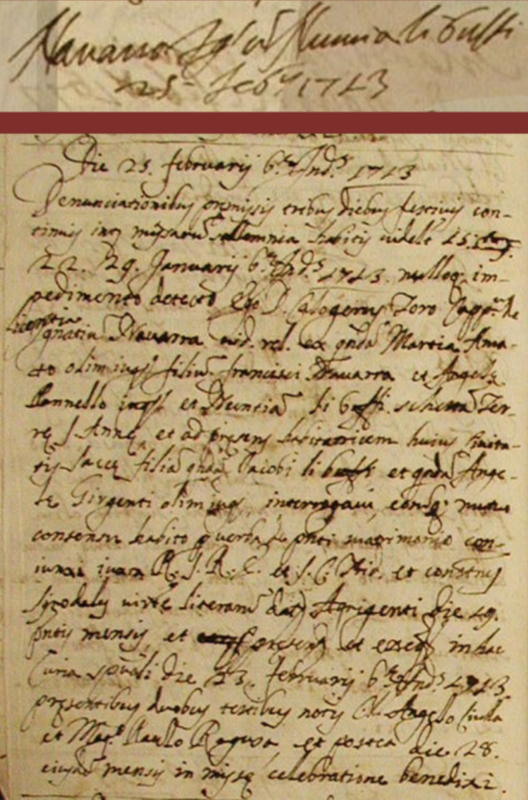 Navarra Ign.s cũ Nuncia li Buffi
25 feb.y 1713
Die 25. februarij 6.e Ind.s 1713
Denunciationibus premissis tribus diebus festivis con-
tinuis inter missarũ sollemnia habitis videlt 15.
22. 29. Januarij 6.e Ind.s 1713. nulloq. im-
pedimento detecto Ego D. Calogerus Zoro Capp.s de
licentia
Ignatiũ Navarra vid. rel. ex qnda Martia Ama-
to olim jug. filiũ francisci Navarra et Angele
Connello jug. et Nunciã li Buffi schettã Ter-
re S. Anne, et ad presens habitatricem huius Civita-
tis Sacce filiã qnda Iacobi li Buffi et qnda Ange-
le Girgenti olim jug. interrogavi, eorũq. mutuo
consensu habito p verba de pnti matrimonio con-
iunxi iuxta R. S. R. E. et S. C. Trid. et constnes
synodales virte literarũ dat. Agrigenti die 19.
pntis mensis, et present. et exec. in hac
Curia spuali die 23. februarij 6.e Ind.s 1713
presentibus duobus testibus notis Cl. Angelo
et Mag.o Paulo Ragusa, et postea die 28.
eiusdẽ mensis in misse celebratione benedixi.